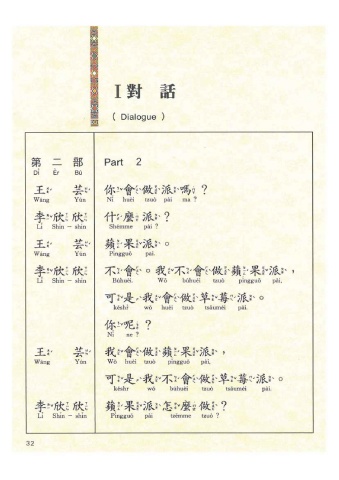 I 對 話
( Dialogue )
第 二 部 Part 2
Dì Èr Bù
王 芸 你會做派嗎？
Wáng Yún Nǐ huèi tzuò pài ma ?
李欣欣 什麼派？
Lǐ Shīn-shīn Shémme pài ?
王 芸 蘋果派。
Wáng Yún Píngguǒ pài.
李欣欣 不會。我不會做蘋果派，
Lǐ Shīn-shīn Búhuèi. Wǒ búhuèi tzuò píngguǒ pài,
可是我會做草莓派。
kěshì wǒ huèi tzuò tsǎuméi pài.
你呢？
Nǐ ne ?
王 芸 我會做蘋果派，
Wáng Yún Wǒ huèi tzuò píngguǒ pài,
可是我不會做草莓派。
kěshì wǒ búhuèi tzuò tsǎuméi pài.
李欣欣 蘋果派怎麼做？
Lǐ Shīn-shīn Píngguǒ pài tzěmme tzuò ?
32